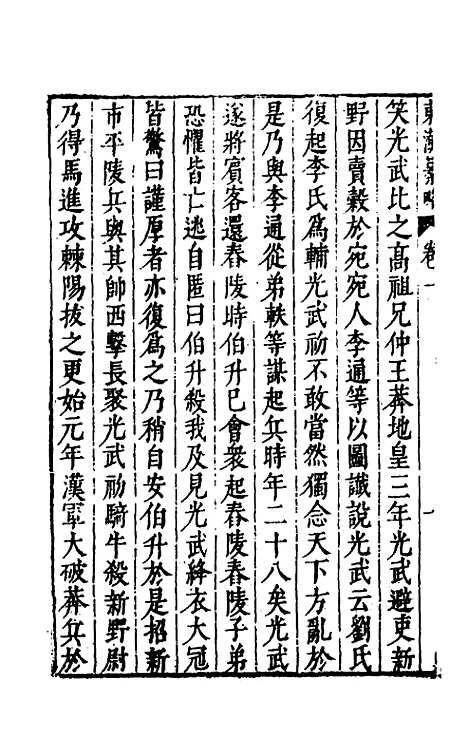 笑光武比之高祖兄仲王莽地皇三年光武避吏新
野因賣穀於宛宛人李通等以圖讖說光武云劉氏
復起李氏為輔光武初不敢當然獨念天下方亂於
是乃與李通從弟軼等謀起兵時年二十八矣光武
遂將賓客還舂陵時伯升已會衆起舂陵舂陵子弟
恐懼皆亡逃自匿曰伯升殺我及見光武絳衣大冠
皆驚曰謹厚者亦復爲之乃稍自安伯升於是招新
市平陵兵與其帥西擊長聚光武初騎牛殺新野尉
乃得馬進攻棘陽拔之更始元年漢軍大破莽兵於
卷一